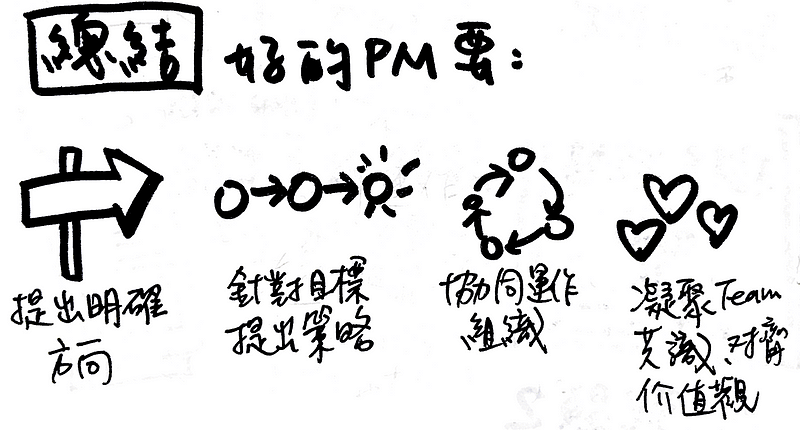 總結 好的PM要：
提出明確
方向
針對目標
提出策略
協同運作
組織
凝聚Team
共識、对齊
价值觀